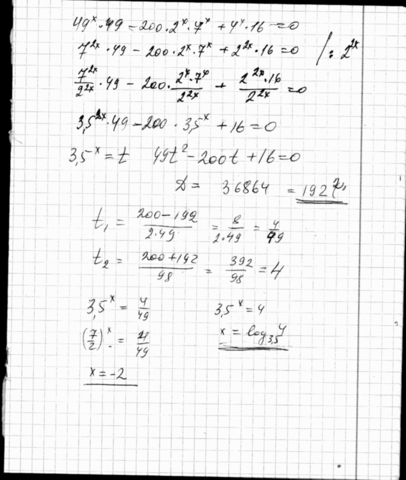 49^x · 49 - 200 · 2^x · 7^x + 4^x · 16 = 0
7^2x · 49 - 200 · 2^x · 7^x + 2^2x · 16 = 0 / : 2^2x
7^2x/2^2x · 49 - 200 · 2^x · 7^x/2^2x + 2^2x · 16/2^2x = 0
3,5^2x · 49 - 200 · 3,5^x + 16 = 0
3,5^x = t 49t² - 200t + 16 = 0
D = 36864 = 192²
t₁ = 200 - 192/2.49 = 8/2.49 = 4/49
t₂ = 200 + 192/98 = 392/98 = 4
3,5^x = 4/49 3,5^x = 4
(7/2)^x = 4/49 x = log₃,₅4
x = -2